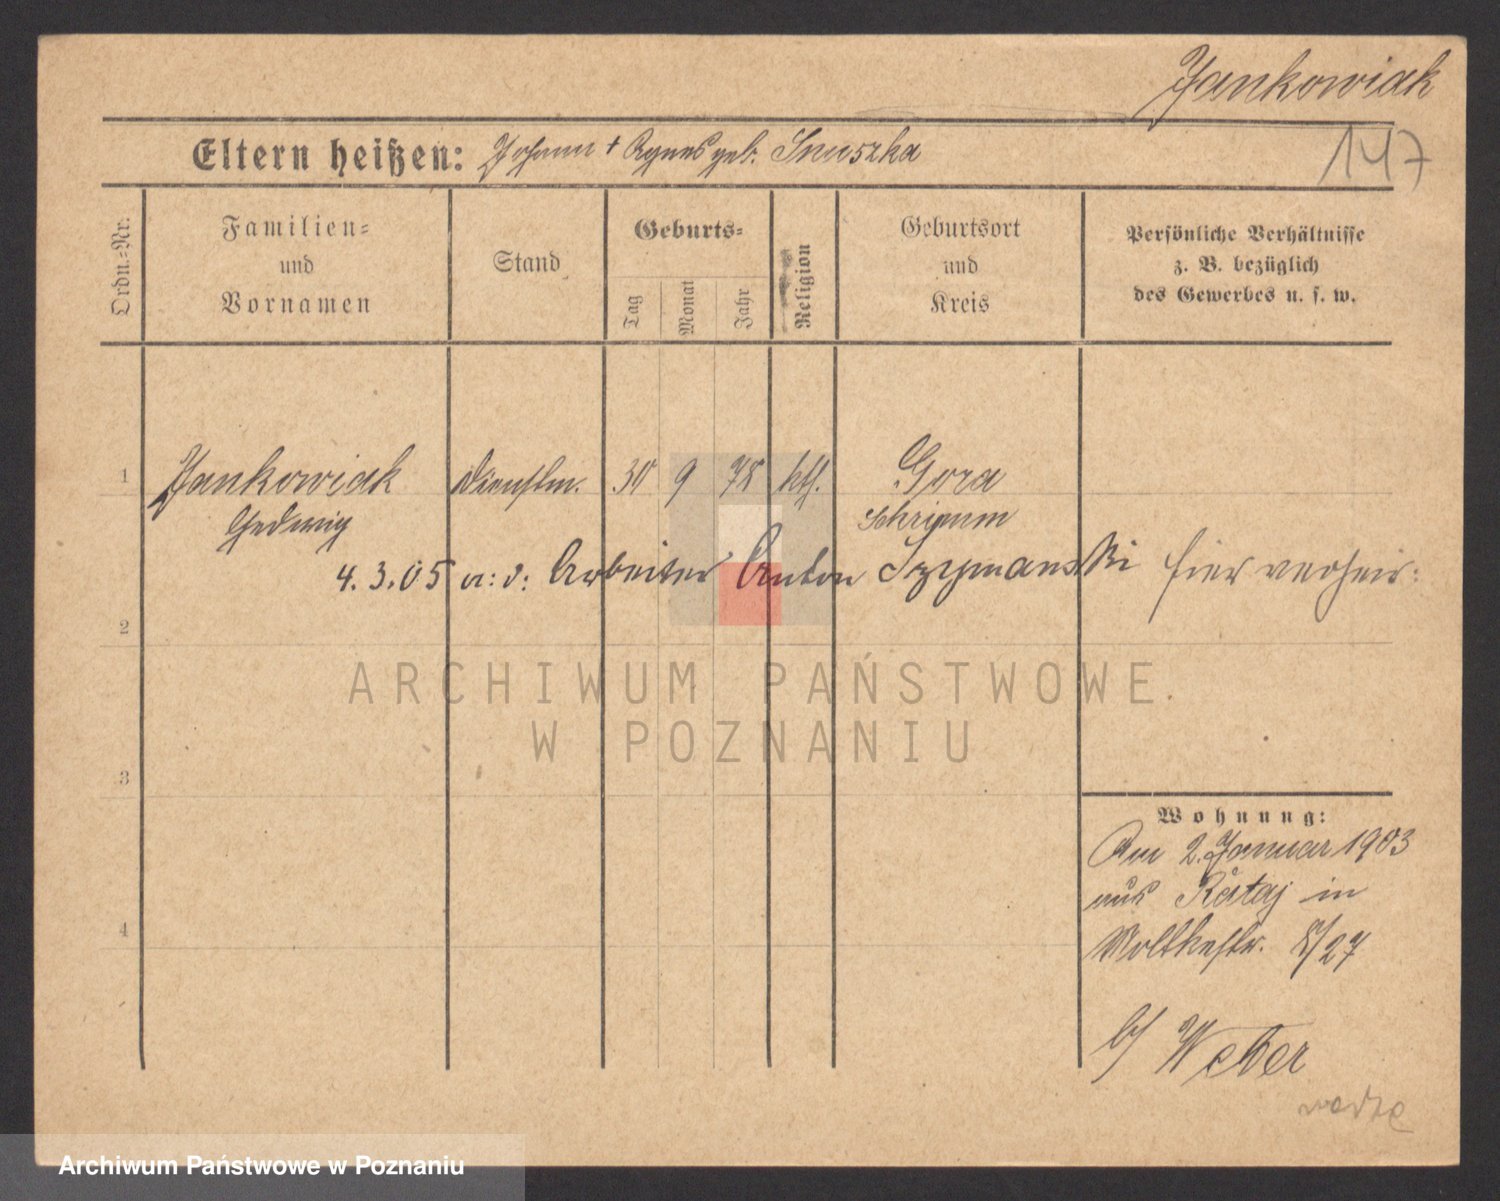 Jankowiak
147
Eltern heißen: Johann + Agnes geb. Snuszka
Ordn.-Nr.
Familien-
und
Vornamen
Stand
Geburts-
Tag
Monat
Jahr
Religion
Geburtsort
und
Kreis
Persönliche Verhältnisse
z. B. bezüglich
des Gewerbes u. s. w.
1 Jankowiak Dienstm. 30 9 78 kth. Gora
Hedwig Schrimm
4.3.05 m: d: Arbeiter Anton Szymanski hier verheir:
2
ARCHIWUM PAŃSTWOWE
W POZNANIU
3
Wohnung:
Am 2. Januar 1903
aus Rataj in
4 Moltkestr. 8/27
b/ Weber
Archiwum Państwowe w Poznaniu